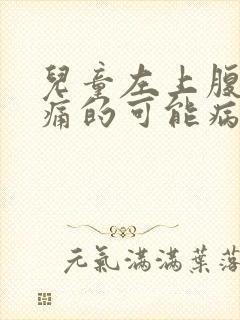 兒童左上腹
痛的可能病
元氣滿滿葉落